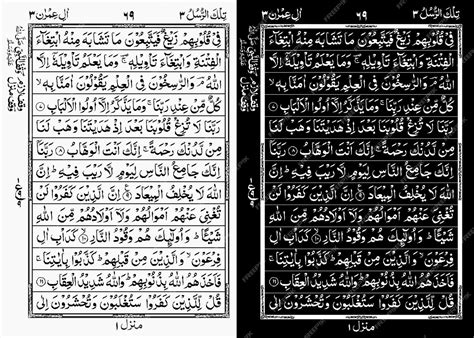 تِلْكَ الرُّسُلُ ٣ ٦٩ اٰلِ عِمْرٰن ٣
فِيْ قُلُوْبِهِمْ زَيْغٌ فَيَتَّبِعُوْنَ مَا تَشَابَهَ مِنْهُ ابْتِغَآءَ
الْفِتْنَةِ وَابْتِغَآءَ تَاْوِيْلِهٖ ۚ وَمَا يَعْلَمُ تَاْوِيْلَهٗٓ اِلَّا
اللّٰهُ ۘ وَالرّٰسِخُوْنَ فِي الْعِلْمِ يَقُوْلُوْنَ اٰمَنَّا بِهٖ ۙ
كُلٌّ مِّنْ عِنْدِ رَبِّنَا ۚ وَمَا يَذَّكَّرُ اِلَّآ اُولُوا الْاَلْبَابِ ٧
رَبَّنَا لَا تُزِغْ قُلُوْبَنَا بَعْدَ اِذْ هَدَيْتَنَا وَهَبْ لَنَا
مِنْ لَّدُنْكَ رَحْمَةً ۚ اِنَّكَ اَنْتَ الْوَهَّابُ ٨ رَبَّنَآ
اِنَّكَ جَامِعُ النَّاسِ لِيَوْمٍ لَّا رَيْبَ فِيْهِ ۚ اِنَّ
اللّٰهَ لَا يُخْلِفُ الْمِيْعَادَ ٩ اِنَّ الَّذِيْنَ كَفَرُوْا لَنْ
تُغْنِيَ عَنْهُمْ اَمْوَالُهُمْ وَلَآ اَوْلَادُهُمْ مِّنَ اللّٰهِ
شَيْـًٔا ۚ وَاُولٰٓئِكَ هُمْ وَقُوْدُ النَّارِ ١٠ كَدَاْبِ اٰلِ
فِرْعَوْنَ ۙ وَالَّذِيْنَ مِنْ قَبْلِهِمْ ۚ كَذَّبُوْا بِاٰيٰتِنَا ۚ
فَاَخَذَهُمُ اللّٰهُ بِذُنُوْبِهِمْ ۚ وَاللّٰهُ شَدِيْدُ الْعِقَابِ ١١
قُلْ لِّلَّذِيْنَ كَفَرُوْا سَتُغْلَبُوْنَ وَتُحْشَرُوْنَ اِلٰى
منزل ١
تِلْكَ الرُّسُلُ ٣ ٦٩ اٰلِ عِمْرٰن ٣
فِيْ قُلُوْبِهِمْ زَيْغٌ فَيَتَّبِعُوْنَ مَا تَشَابَهَ مِنْهُ ابْتِغَآءَ
الْفِتْنَةِ وَابْتِغَآءَ تَاْوِيْلِهٖ ۚ وَمَا يَعْلَمُ تَاْوِيْلَهٗٓ اِلَّا
اللّٰهُ ۘ وَالرّٰسِخُوْنَ فِي الْعِلْمِ يَقُوْلُوْنَ اٰمَنَّا بِهٖ ۙ
كُلٌّ مِّنْ عِنْدِ رَبِّنَا ۚ وَمَا يَذَّكَّرُ اِلَّآ اُولُوا الْاَلْبَابِ ٧
رَبَّنَا لَا تُزِغْ قُلُوْبَنَا بَعْدَ اِذْ هَدَيْتَنَا وَهَبْ لَنَا
مِنْ لَّدُنْكَ رَحْمَةً ۚ اِنَّكَ اَنْتَ الْوَهَّابُ ٨ رَبَّنَآ
اِنَّكَ جَامِعُ النَّاسِ لِيَوْمٍ لَّا رَيْبَ فِيْهِ ۚ اِنَّ
اللّٰهَ لَا يُخْلِفُ الْمِيْعَادَ ٩ اِنَّ الَّذِيْنَ كَفَرُوْا لَنْ
تُغْنِيَ عَنْهُمْ اَمْوَالُهُمْ وَلَآ اَوْلَادُهُمْ مِّنَ اللّٰهِ
شَيْـًٔا ۚ وَاُولٰٓئِكَ هُمْ وَقُوْدُ النَّارِ ١٠ كَدَاْبِ اٰلِ
فِرْعَوْنَ ۙ وَالَّذِيْنَ مِنْ قَبْلِهِمْ ۚ كَذَّبُوْا بِاٰيٰتِنَا ۚ
فَاَخَذَهُمُ اللّٰهُ بِذُنُوْبِهِمْ ۚ وَاللّٰهُ شَدِيْدُ الْعِقَابِ ١١
قُلْ لِّلَّذِيْنَ كَفَرُوْا سَتُغْلَبُوْنَ وَتُحْشَرُوْنَ اِلٰى
منزل ١